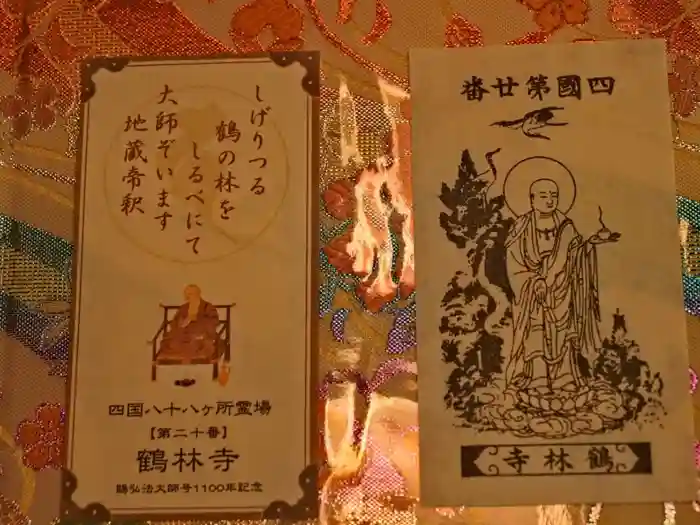 しげりつる
鶴の林を
しるべにて
大師ぞいます
地蔵帝釈
四国八十八ヶ所霊場
【第二十番】
鶴林寺
賜弘法大師号1100年記念
四國第廿番
鶴林寺